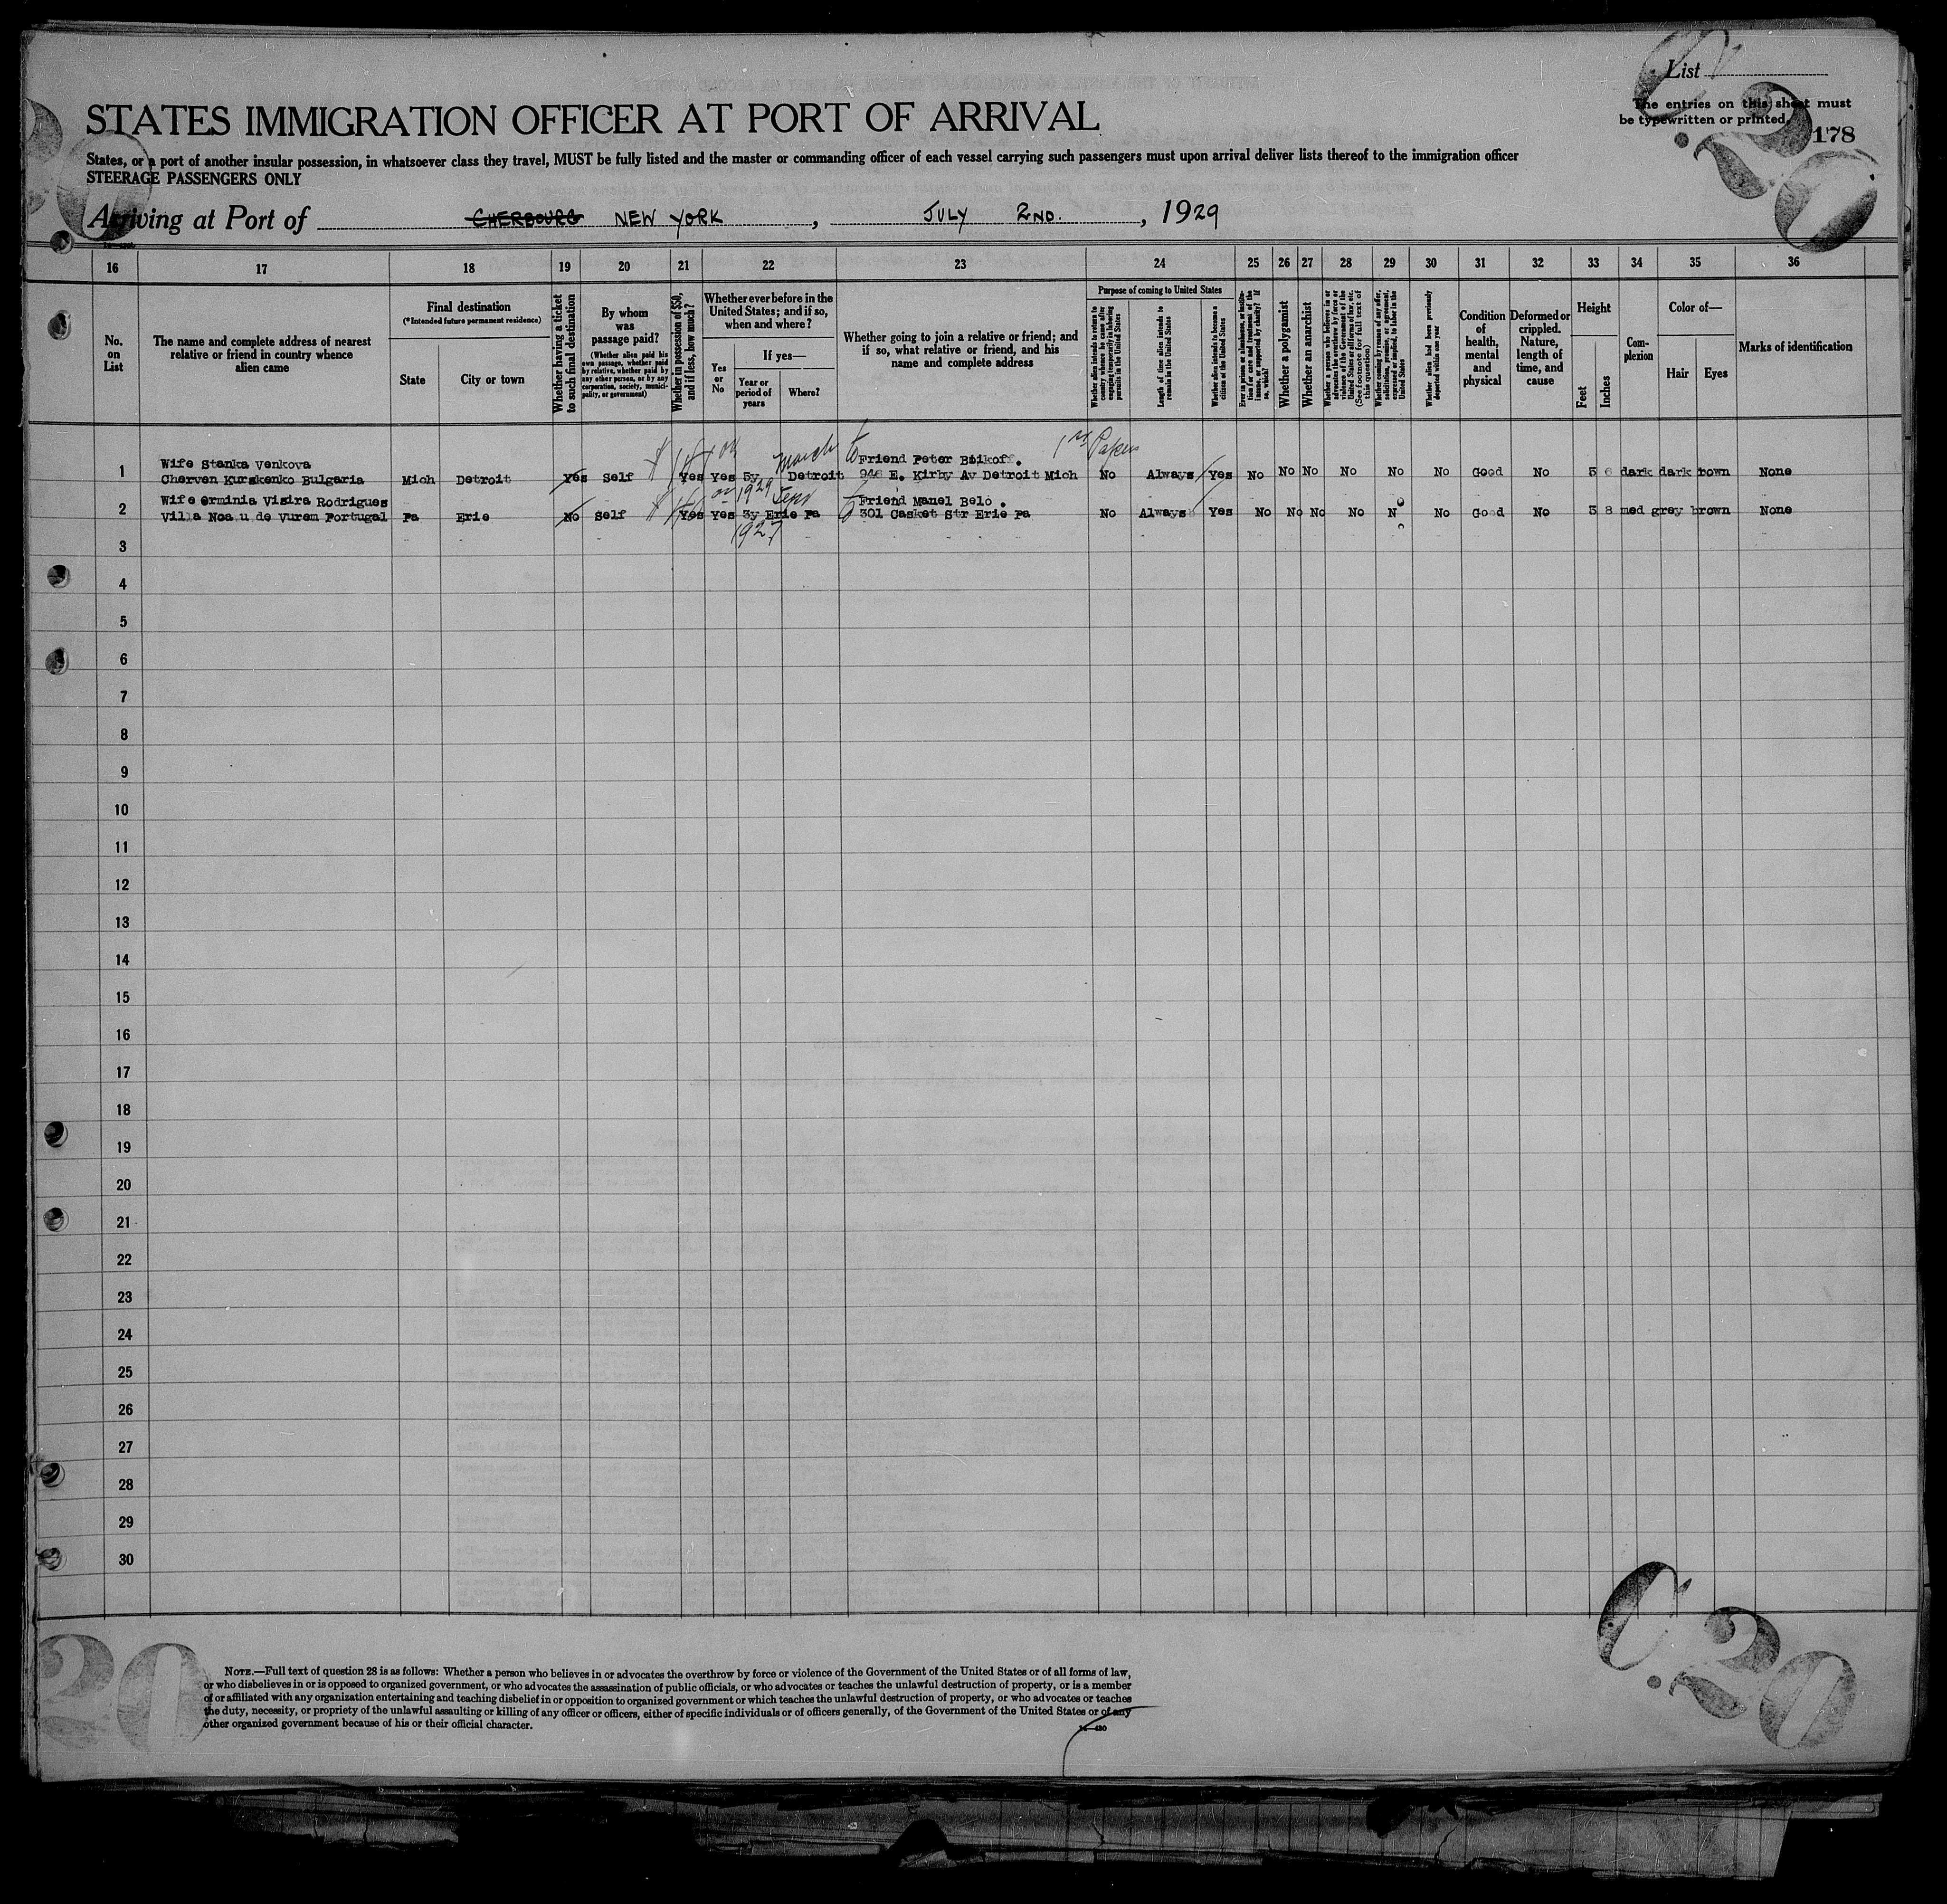 List
The entries on this sheet must
be typewritten or printed.
178
C.20
STATES IMMIGRATION OFFICER AT PORT OF ARRIVAL
States, or a port of another insular possession, in whatsoever class they travel, MUST be fully listed and the master or commanding officer of each vessel carrying such passengers must upon arrival deliver lists thereof to the immigration officer
STEERAGE PASSENGERS ONLY
Arriving at Port of CHERBOURG NEW YORK, JULY 2ND., 1929
16 17 18 19 20 21 22 23 24 25 26 27 28 29 30 31 32 33 34 35 36
No.
on
List
The name and complete address of nearest
relative or friend in country whence
alien came
Final destination
(*Intended future permanent residence)
State
City or town
Whether having a ticket
to such final destination
By whom
was
passage paid?
(Whether alien paid his
own passage, whether paid
by relative, whether paid by
any other person, or by any
corporation, society, munici-
pality, or government)
Whether in possession of $50,
and if less, how much?
Whether ever before in the
United States; and if so,
when and where?
Yes
or
No
If yes—
Year or
period of
years
Where?
Whether going to join a relative or friend; and
if so, what relative or friend, and his
name and complete address
Purpose of coming to United States
Whether alien intends to return to
country whence he came after
engaging temporarily in laboring
pursuits in the United States
Length of time alien intends to
remain in the United States
Whether alien intends to become a
citizen of the United States
Ever in prison or almshouse, or institu-
tion for care and treatment of the
insane, or supported by charity? If
so, which?
Whether a polygamist
Whether an anarchist
Whether a person who believes in or
advocates the overthrow by force or
violence of the Government of the
United States or all forms of law, etc.
(See footnote for full text of
this question)
Whether coming by reason of any offer,
solicitation, promise, or agreement,
expressed or implied, to labor in the
United States
Whether alien had been previously
deported within one year
Condition
of
health,
mental
and
physical
Deformed or
crippled.
Nature,
length of
time, and
cause
Height
Feet
Inches
Com-
plexion
Color of—
Hair
Eyes
Marks of identification
March
1st Papers
Wife Stanka Venkova
to Friend Peter Boikoff.
1 Cherven Kurskenko Bulgaria Mich Detroit Yes Self Yes Yes 5y Detroit 946 E. Kirby Av Detroit Mich No Always Yes No No No No No No Good No 5 6 dark dark brown None
1929 Sept
Wife erminia Visira Rodrigues
to Friend Manel Belo.
2 Villa Noa u de Vurem Portugal Pa Erie No Self Yes Yes 3y Erie Pa 301 Casket Str Erie Pa No Always Yes No No No No No No Good No 5 8 med grey brown None
1927
3
4
5
6
7
8
9
10
11
12
13
14
15
16
17
18
19
20
21
22
23
24
25
26
27
28
29
30
C.20
20
NOTE.—Full text of question 28 is as follows: Whether a person who believes in or advocates the overthrow by force or violence of the Government of the United States or of all forms of law,
or who disbelieves in or is opposed to organized government, or who advocates the assassination of public officials, or who advocates or teaches the unlawful destruction of property, or is a member
of or affiliated with any organization entertaining and teaching disbelief in or opposition to organized government or which teaches the unlawful destruction of property, or who advocates or teaches
the duty, necessity, or propriety of the unlawful assaulting or killing of any officer or officers, either of specific individuals or of officers generally, of the Government of the United States or of any
other organized government because of his or their official character.
14—430